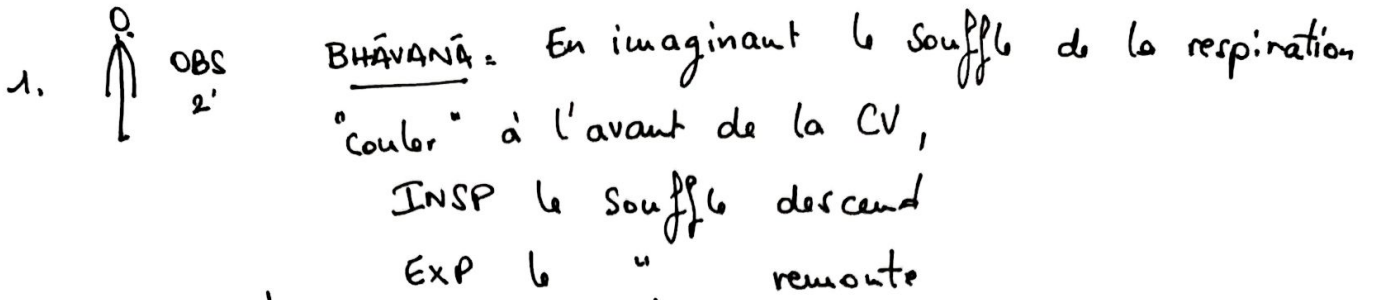 1. OBS BHĀVANĀ: En imaginant le souffle de la respiration
2' "couler" à l'avant de la CV,
INSP le souffle descend
EXP le " remonte